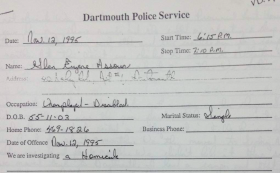 Dartmouth Police Service
Date: Nov. 12, 1995 Start Time: 6:15 P.M.
Stop Time: 7:10 P.M.
Name: Glen Eugene Assoun
Occupation: Unemployed - Disabled
D.O.B. 55-11-03 Marital Status: Single
Home Phone: 469-1826 Business Phone:
Date of Offence Nov. 12, 1995
We are investigating a Homicide